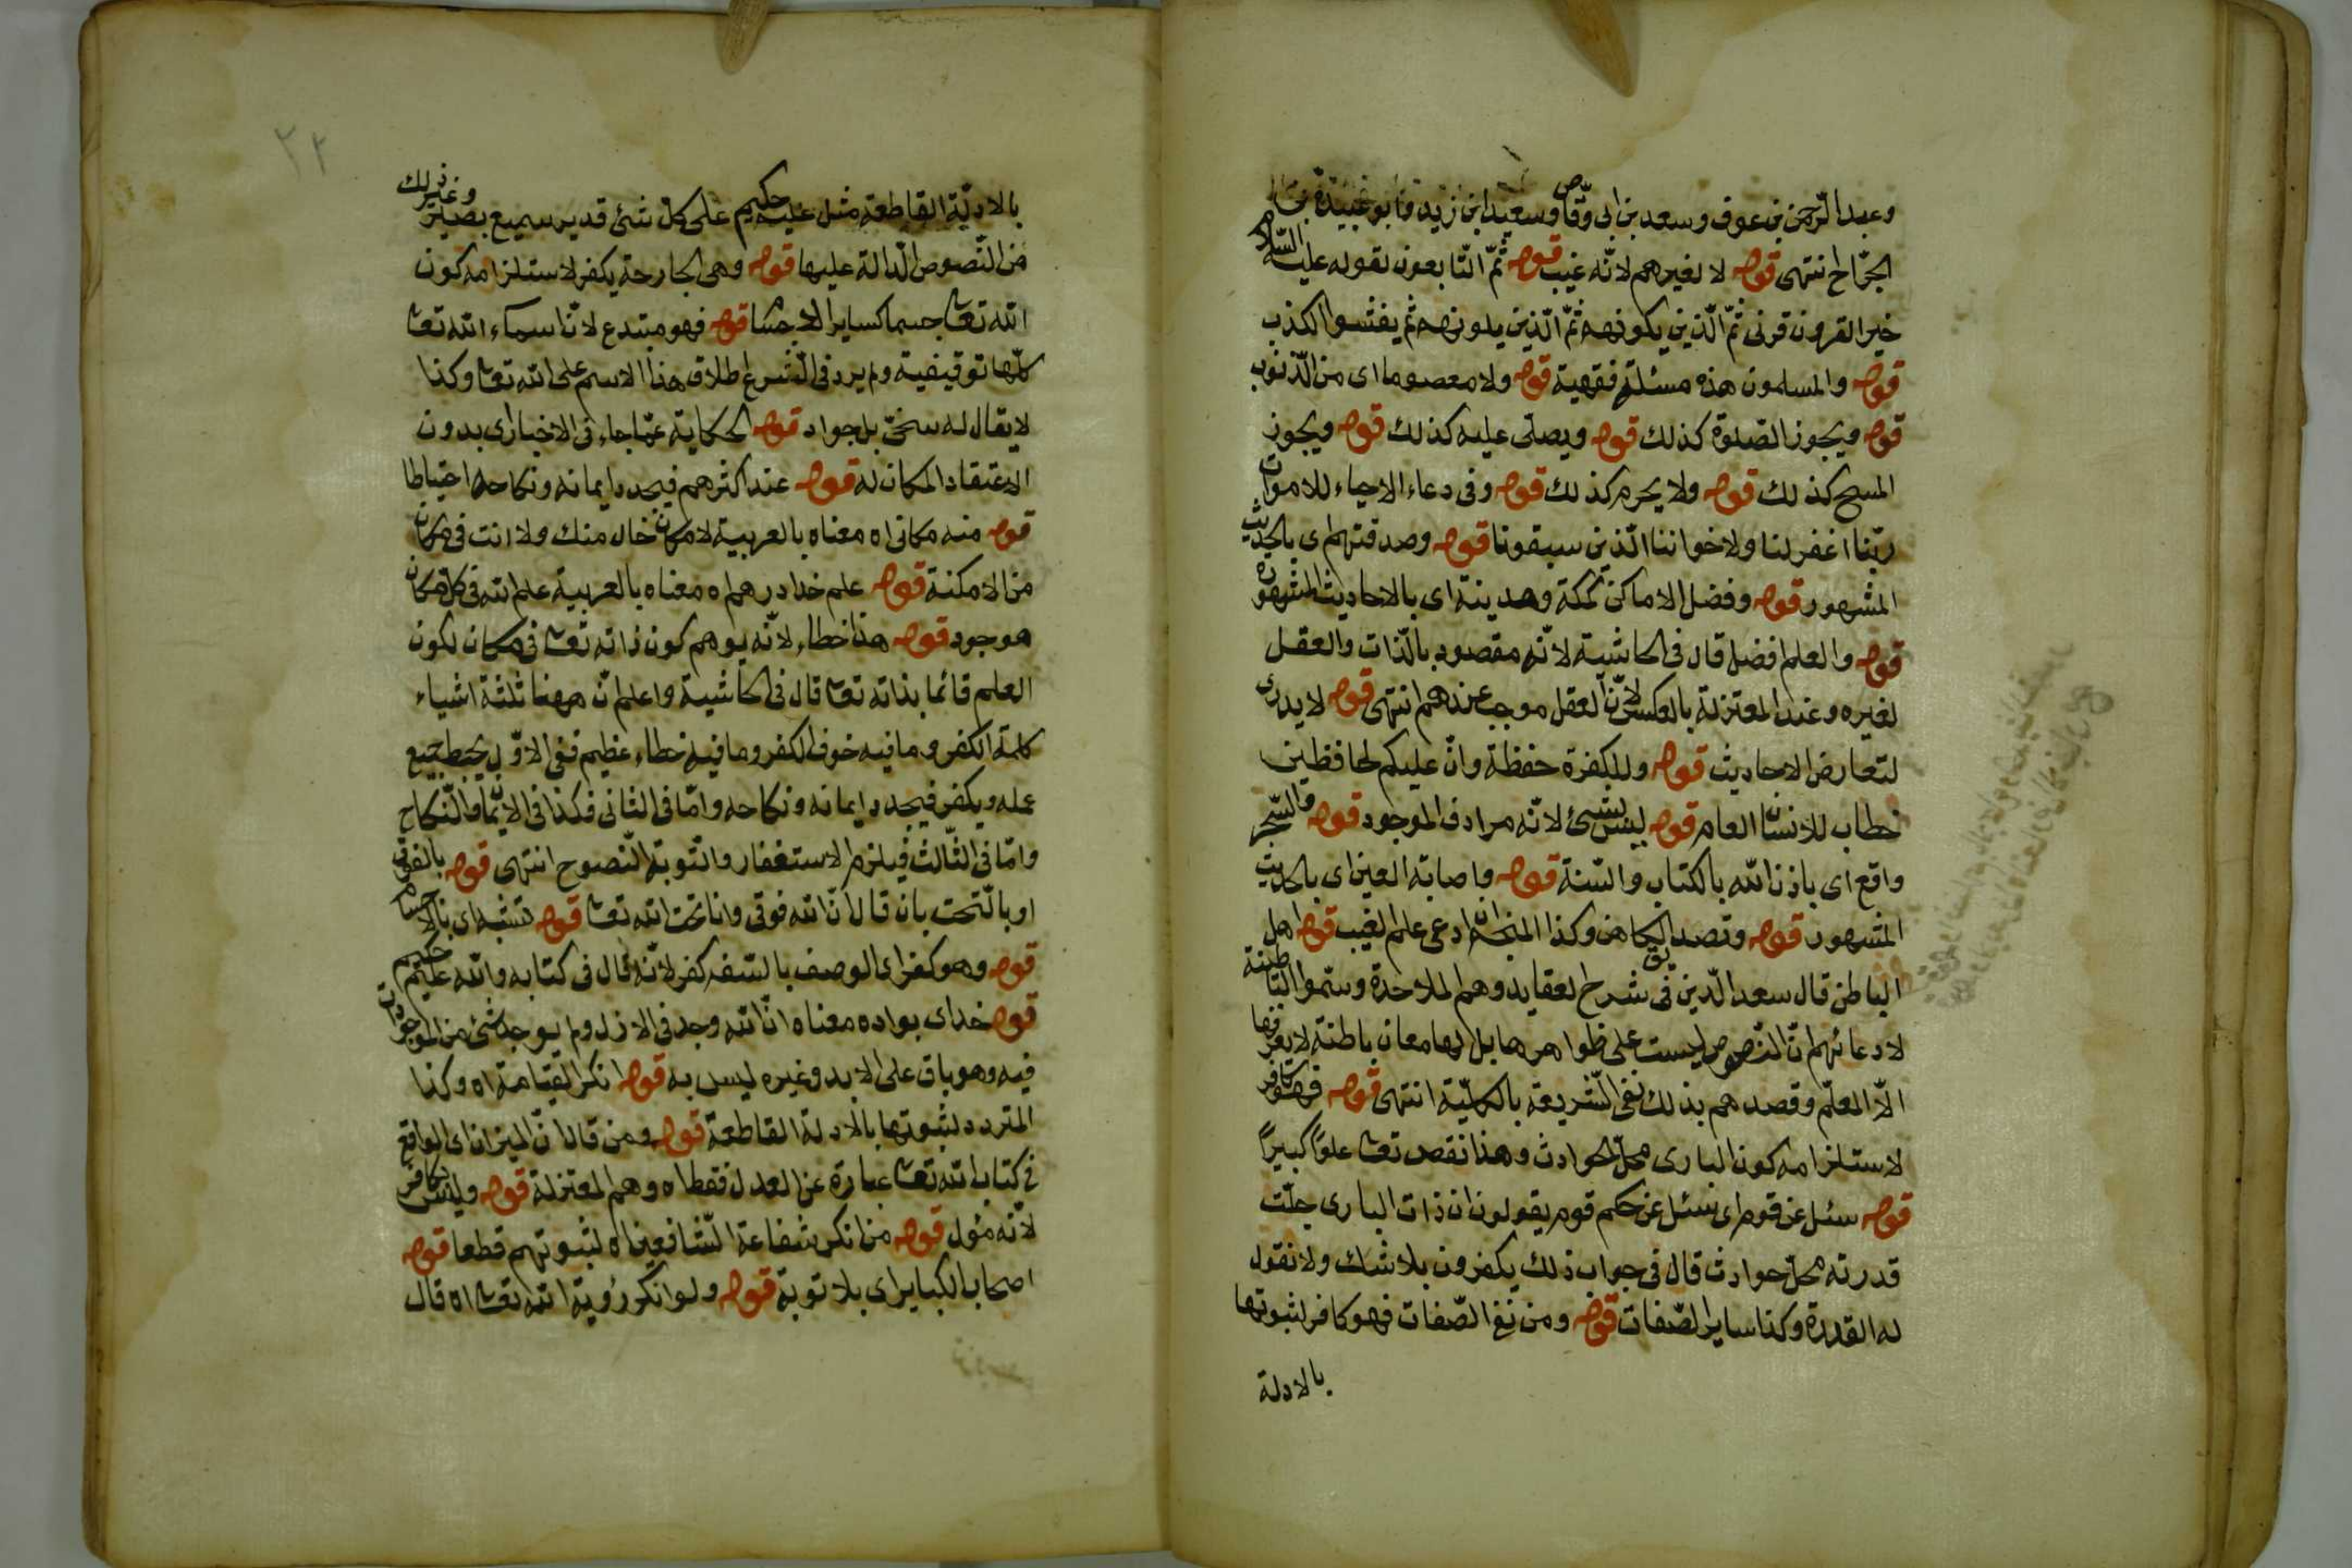 وعبد الرّحمن بن عوف وسعد بن ابى وقّاص وسعيد ابن زيد وابو عبيدة بن
الجرّاح انتهى قوله لا لغيرهم لانّه غيب قوله ثمّ التّابعون لقوله عليه السّلام
خير القرون قرنى ثمّ الّذين يلونهم ثمّ الّذين يلونهم ثم يفشوا الكذب
قوله والمسلمون هذه مسئلة فقهية قوله ولا معصوما اى من الذّنوب
قوله ويجوز الصّلوة كذلك قوله ويصلّى عليه كذلك قوله ويجوز
المسح كذلك قوله ولا يحرم كذلك قوله وفى دعاء الاحياء للاموات
ربّنا اغفر لنا ولاخواننا الّذين سبقونا قوله وصدقتهم اى بالحديث
المشهور قوله وفضل الاماكن كمكة ومدينة اى بالاحاديث المشهورة
قوله والعلم افضل قال فى الحاشية لانّه مقصود بالذّات والعقل
لغيره وعند المعتزلة بالعكس لانّ العقل موجب عندهم انتهى قوله لا يدرى
لتعارض الاحاديث قوله وللكفرة حفظة وانّ عليكم لحافظين
خطاب للانسان العام قوله ليس بشئ لانّه مرادف الموجود قوله والسّحر
واقع اى باذن اللّه بالكتاب والسّنة قوله واصابة العين اى بالحديث
المشهور قوله وتصديق الكاهن وكذا المنجّم ان ادعى علم الغيب قوله اهل
الباطن قال سعد الدّين فى شرح لعقايد وهم الملاحدة وسمّوا الباطنة
لادعائهم انّ النّصوص ليست على ظواهرها بل لها معان باطنة لا يعرفها
الّا المعلّم وقصدهم بذلك نفى الشّريعة بالكلّيّة انتهى قوله فهو كافر
لاستلزامه كون البارى محلّ الحوادث وهذا نقص تعا علوّا كبيرًا
قوله سئل عن قوم اى سئل عن حكم قوم يقولون ان ذات البارى جلّت
قدرته محلّ حوادث قال فى جواب ذلك يكفرون بلا شك ولا نقول
له القدرة وكذا ساير الصّفات قوله ومن نفى الصّفات فهو كافر لثبوتها
بالادلة
٢٢
بالادلّة القاطعة مثل عليم حكيم على كلّ شئ قدير سميع بصير وغير ذلك
من النّصوص الدّالة عليها قوله وهى الجارحة يكفر لاستلزامه كون
اللّه تعا جسما كساير الاجسام قوله فهو مبتدع لانّ اسماء اللّه تعا
كلّها توقيفية ولم يرد فى الشّرع اطلاق هذا الاسم على اللّه تعا وكذا
لا يقال له سخىّ بل جواد قوله الحكاية عمّا جاء فى الاخبار اى بدون
الاعتقاد المكان له قوله عند اكثرهم فيجدد ايمانه ونكاحه احتياطا
قوله منه مكانى اه معناه بالعربية لا مكان خال منك ولا انت فى مكان
من الامكنة قوله علم خدا در هم اه معناه بالعربية علم اللّه فى كلّ مكان
موجود قوله هذا خطاء لانّه يوهم كون ذاته تعا فى مكان لكون
العلم قائما بذاته تعا قال فى الحاشية واعلم انّ ههنا ثلثة اشياء
كلمة الكفر وما فيه خوف الكفر وما فيه خطاء عظيم ففى الاوّل يحبط جميع
عمله ويكفر فيجدد ايمانه ونكاحه وامّا فى الثانى فكذا فى الايمان والنّكاح
وامّا فى الثّالث فيلزم الاستغفار والتّوبة النّصوح انتهى قوله بالفوق
او بالتّحت بان قال انّ اللّه فوقى وانا تحت اللّه تعا قوله تشبه اى بالاجسام
قوله وهو كفر اى الوصف بالسّفه كفر لانّه قال فى كتابه واللّه عليم حكيم
قوله خداى بواده معناه انّ اللّه وجد فى الازل ولم يوجد شئ من الموجودات
فيه وهو باق على الابد وغيره ليس به قوله انكر القيامة اه وكذا
المتردد لثبوتها بالادلة القاطعة قوله ومن قال انّ الميزان اى الواقع
فى كتاب اللّه تعا عبارة عن العدل فقط اه وهم المعتزلة قوله وليس بكافر
لانّه مؤل قوله من انكر شفاعة الشّافعين اه لثبوتهم قطعا قوله
اصحاب الكباير اى بلا توبة قوله ولو انكر رؤية اللّه تعا اه قال